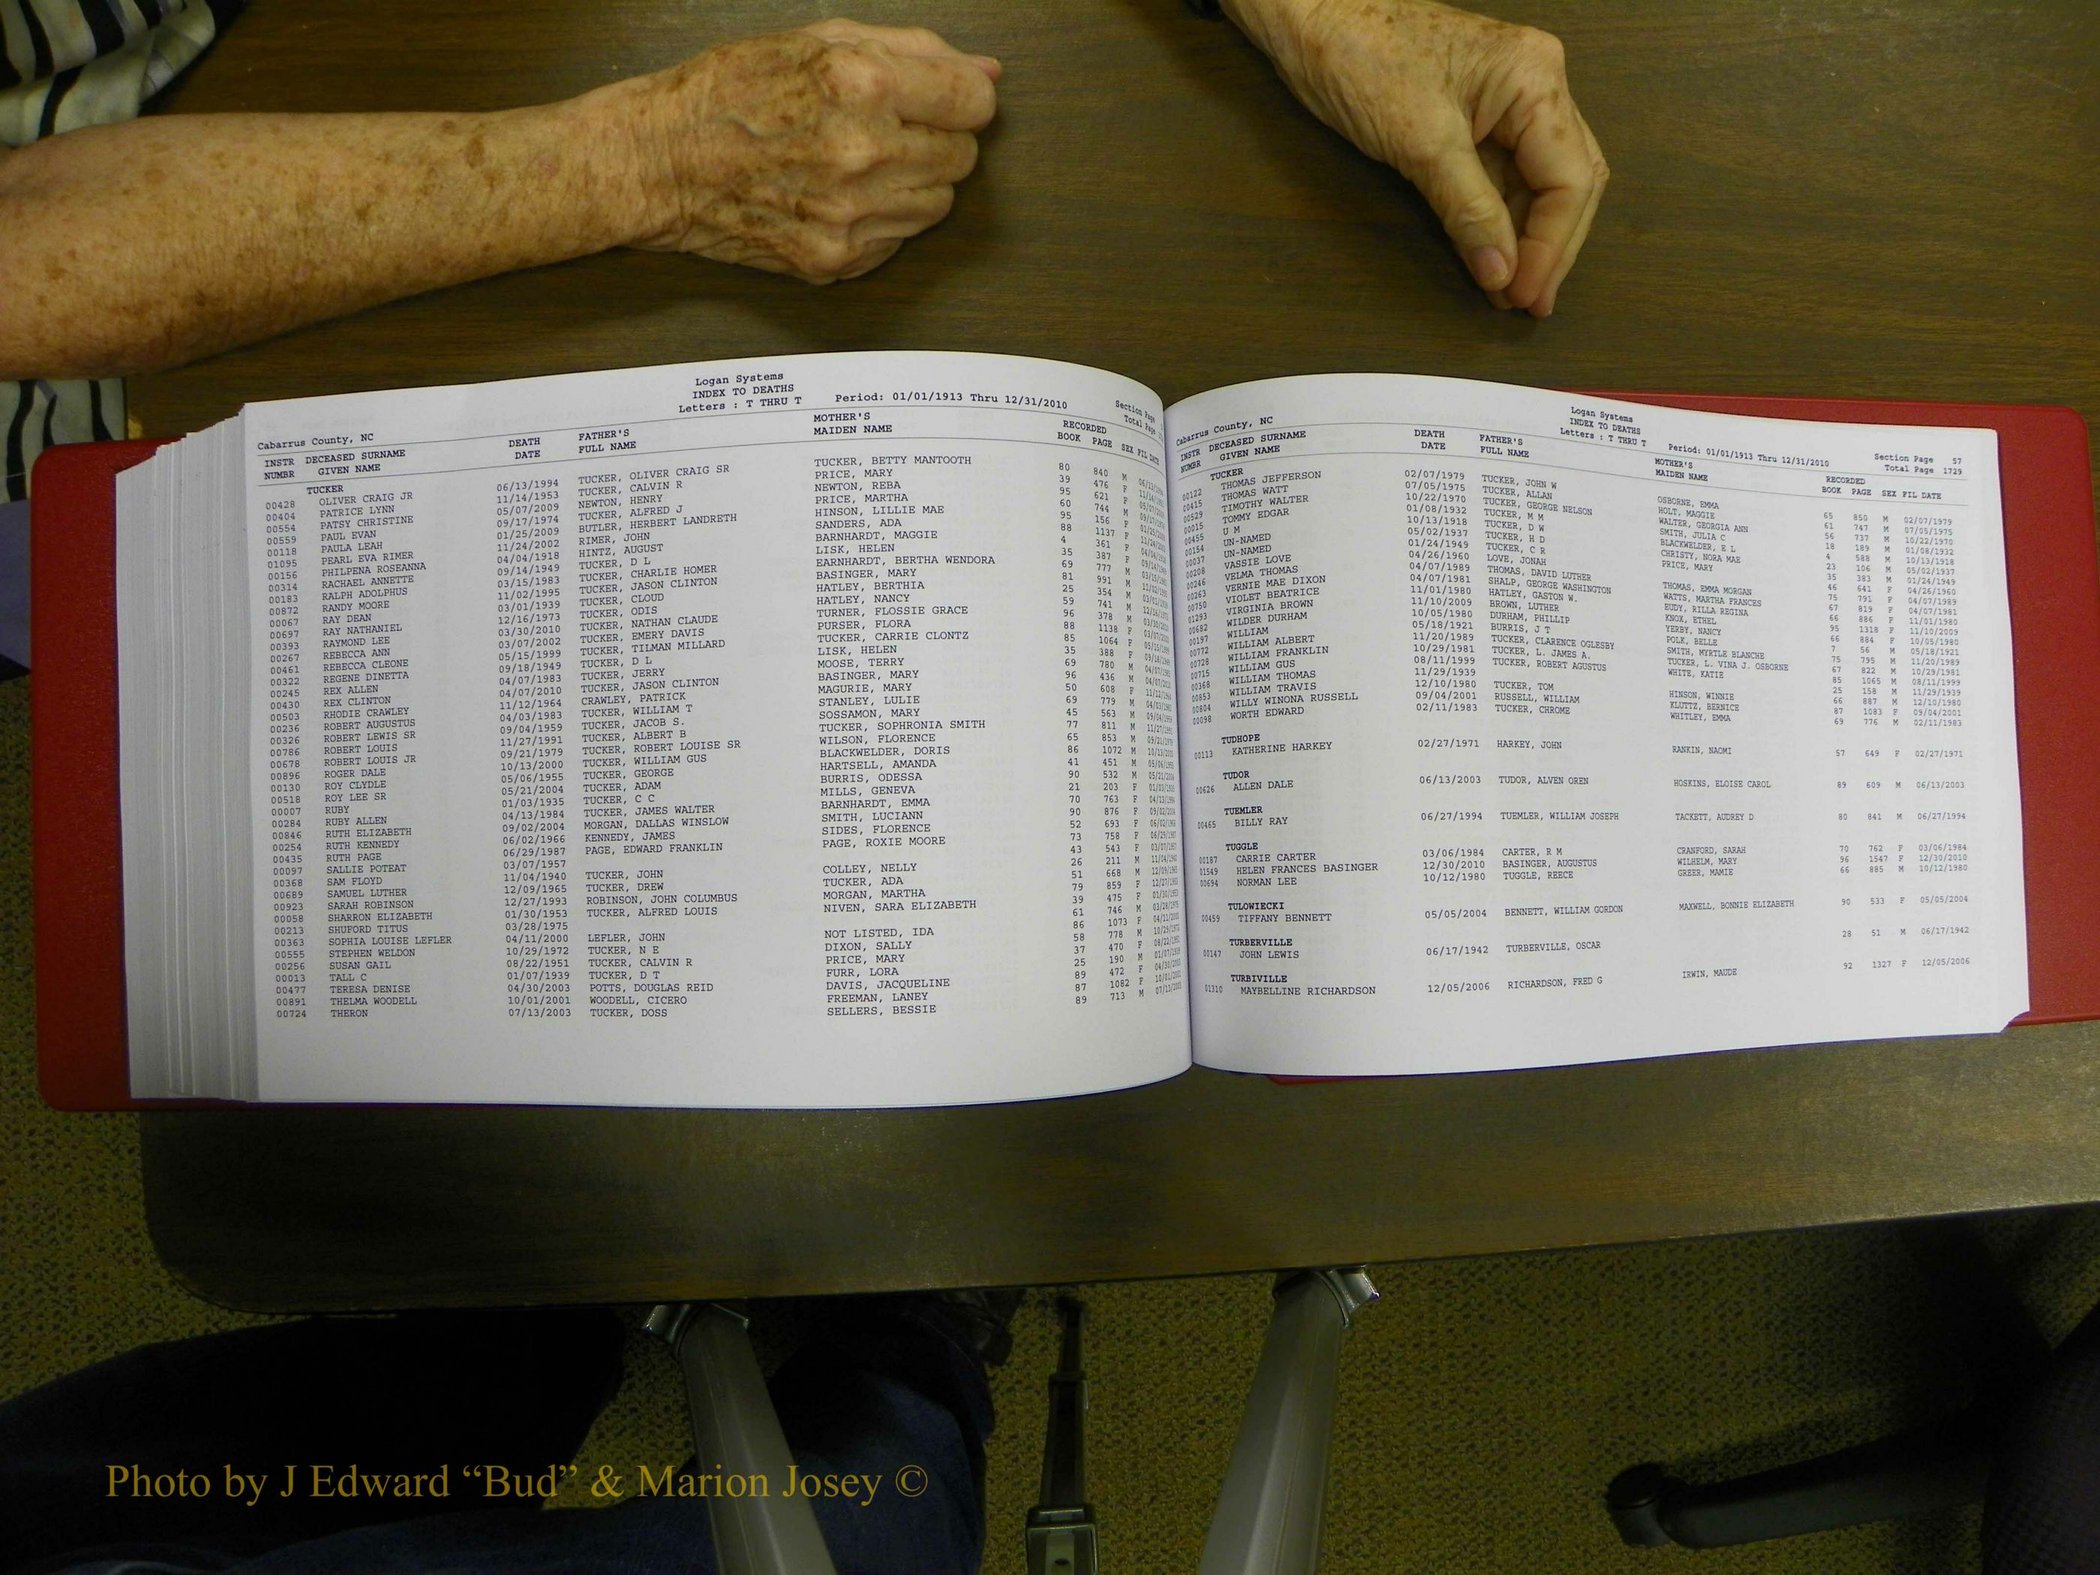 Logan Systems
INDEX TO DEATHS
Letters : T THRU T Period: 01/01/1913 Thru 12/31/2010 Section Page
Cabarrus County, NC Total Page
INSTR NUMBR DECEASED SURNAME GIVEN NAME DEATH DATE FATHER'S FULL NAME MOTHER'S MAIDEN NAME RECORDED BOOK PAGE SEX FIL DATE
TUCKER
00428 OLIVER CRAIG JR 06/13/1994 TUCKER, OLIVER CRAIG SR TUCKER, BETTY MANTOOTH 80 840 M
00404 PATRICE LYNN 11/14/1953 TUCKER, CALVIN R PRICE, MARY 39 476 F
00554 PATSY CHRISTINE 05/07/2009 NEWTON, HENRY NEWTON, REBA 95 621 F
00559 PAUL EVAN 09/17/1974 TUCKER, ALFRED J PRICE, MARTHA 60 744 M
00118 PAULA LEAH 01/25/2009 BUTLER, HERBERT LANDRETH HINSON, LILLIE MAE 95 156 F
01095 PEARL EVA RIMER 11/24/2002 RIMER, JOHN SANDERS, ADA 88 1137 F
00156 PHILPENA ROSEANNA 04/04/1918 HINTZ, AUGUST BARNHARDT, MAGGIE 4 361 F
00314 RACHAEL ANNETTE 09/14/1949 TUCKER, D L LISK, HELEN 35 387 F
00183 RALPH ADOLPHUS 03/15/1983 TUCKER, CHARLIE HOMER EARNHARDT, BERTHA WENDORA 69 777 M
00872 RANDY MOORE 11/02/1995 TUCKER, JASON CLINTON BASINGER, MARY 81 991 M
00067 RAY DEAN 03/01/1939 TUCKER, CLOUD HATLEY, BERTHIA 25 354 M
00697 RAY NATHANIEL 12/16/1973 TUCKER, ODIS HATLEY, NANCY 59 741 M
00393 RAYMOND LEE 03/30/2010 TUCKER, NATHAN CLAUDE TURNER, FLOSSIE GRACE 96 378 M
00267 REBECCA ANN 03/07/2002 TUCKER, EMERY DAVIS PURSER, FLORA 88 1138 F
00461 REBECCA CLEONE 05/15/1999 TUCKER, TILMAN MILLARD TUCKER, CARRIE CLONTZ 85 1064 F
00322 REGENE DINETTA 09/18/1949 TUCKER, D L LISK, HELEN 35 388 F
00245 REX ALLEN 04/07/1983 TUCKER, JERRY MOOSE, TERRY 69 780 M
00430 REX CLINTON 04/07/2010 TUCKER, JASON CLINTON BASINGER, MARY 96 436 M
00503 RHODIE CRAWLEY 11/12/1964 CRAWLEY, PATRICK MAGURIE, MARY 50 608 F
00236 ROBERT AUGUSTUS 04/03/1983 TUCKER, WILLIAM T STANLEY, LULIE 69 779 M
00326 ROBERT LEWIS SR 09/04/1959 TUCKER, JACOB S. SOSSAMON, MARY 45 563 M
00786 ROBERT LOUIS 11/27/1991 TUCKER, ALBERT B TUCKER, SOPHRONIA SMITH 77 811 M
00678 ROBERT LOUIS JR 09/21/1979 TUCKER, ROBERT LOUISE SR WILSON, FLORENCE 65 853 M
00896 ROGER DALE 10/13/2000 TUCKER, WILLIAM GUS BLACKWELDER, DORIS 86 1072 M
00130 ROY CLYDLE 05/06/1955 TUCKER, GEORGE HARTSELL, AMANDA 41 451 M
00518 ROY LEE SR 05/21/2004 TUCKER, ADAM BURRIS, ODESSA 90 532 M
00007 RUBY 01/03/1935 TUCKER, C C MILLS, GENEVA 21 203 F
00284 RUBY ALLEN 04/13/1984 TUCKER, JAMES WALTER BARNHARDT, EMMA 70 763 F
00846 RUTH ELIZABETH 09/02/2004 MORGAN, DALLAS WINSLOW SMITH, LUCIANN 90 876 F
00254 RUTH KENNEDY 06/02/1966 KENNEDY, JAMES SIDES, FLORENCE 52 693 F
00435 RUTH PAGE 06/29/1987 PAGE, EDWARD FRANKLIN PAGE, ROXIE MOORE 73 758 F
00097 SALLIE POTEAT 03/07/1957 43 543 F
00368 SAM FLOYD 11/04/1940 TUCKER, JOHN COLLEY, NELLY 26 211 M
00689 SAMUEL LUTHER 12/09/1965 TUCKER, DREW TUCKER, ADA 51 668 M
00923 SARAH ROBINSON 12/27/1993 ROBINSON, JOHN COLUMBUS MORGAN, MARTHA 79 859 F
00058 SHARRON ELIZABETH 01/30/1953 TUCKER, ALFRED LOUIS NIVEN, SARA ELIZABETH 39 475 F
00213 SHUFORD TITUS 03/28/1975 61 746 M
00363 SOPHIA LOUISE LEFLER 04/11/2000 LEFLER, JOHN NOT LISTED, IDA 86 1073 F
00555 STEPHEN WELDON 10/29/1972 TUCKER, N E DIXON, SALLY 58 778 M
00256 SUSAN GAIL 08/22/1951 TUCKER, CALVIN R PRICE, MARY 37 470 F
00013 TALL C 01/07/1939 TUCKER, D T FURR, LORA 25 190 M
00477 TERESA DENISE 04/30/2003 POTTS, DOUGLAS REID DAVIS, JACQUELINE 89 472 F
00891 THELMA WOODELL 10/01/2001 WOODELL, CICERO FREEMAN, LANEY 87 1082 F
00724 THERON 07/13/2003 TUCKER, DOSS SELLERS, BESSIE 89 713 M
Logan Systems
INDEX TO DEATHS
Letters : T THRU T Period: 01/01/1913 Thru 12/31/2010 Section Page 57
Cabarrus County, NC Total Page 1729
INSTR NUMBR DECEASED SURNAME GIVEN NAME DEATH DATE FATHER'S FULL NAME MOTHER'S MAIDEN NAME RECORDED BOOK PAGE SEX FIL DATE
TUCKER
00122 THOMAS JEFFERSON 02/07/1979 TUCKER, JOHN W OSBORNE, EMMA 65 850 M 02/07/1979
00415 THOMAS WATT 07/05/1975 TUCKER, ALLAN HOLT, MAGGIE 61 747 M 07/05/1975
00529 TIMOTHY WALTER 10/22/1970 TUCKER, GEORGE NELSON WALTER, GEORGIA ANN 56 737 M 10/22/1970
00015 TOMMY EDGAR 01/08/1932 TUCKER, M M SMITH, JULIA C 18 189 M 01/08/1932
00455 U M 10/13/1918 TUCKER, D W BLACKWELDER, E L 4 588 M 10/13/1918
00154 UN-NAMED 05/02/1937 TUCKER, H D CHRISTY, NORA MAE 23 106 M 05/02/1937
00037 UN-NAMED 01/24/1949 TUCKER, C R PRICE, MARY 35 383 M 01/24/1949
00208 VASSIE LOVE 04/26/1960 LOVE, JONAH 46 641 F 04/26/1960
00246 VELMA THOMAS 04/07/1989 THOMAS, DAVID LUTHER THOMAS, EMMA MORGAN 75 791 F 04/07/1989
00263 VERNIE MAE DIXON 04/07/1981 SHALP, GEORGE WASHINGTON WATTS, MARTHA FRANCES 67 819 F 04/07/1981
00750 VIOLET BEATRICE 11/01/1980 HATLEY, GASTON W. EUDY, RILLA REGINA 66 886 F 11/01/1980
01293 VIRGINIA BROWN 11/10/2009 BROWN, LUTHER KNOX, ETHEL 95 1318 F 11/10/2009
00682 WILDER DURHAM 10/05/1980 DURHAM, PHILLIP YERBY, NANCY 66 884 F 10/05/1980
00197 WILLIAM 05/18/1921 BURRIS, J T POLK, BELLE 7 56 M 05/18/1921
00772 WILLIAM ALBERT 11/20/1989 TUCKER, CLARENCE OGLESBY SMITH, MYRTLE BLANCHE 75 795 M 11/20/1989
00728 WILLIAM FRANKLIN 10/29/1981 TUCKER, L. JAMES A. TUCKER, L. VINA J. OSBORNE 67 822 M 10/29/1981
00715 WILLIAM GUS 08/11/1999 TUCKER, ROBERT AGUSTUS WHITE, KATIE 85 1065 M 08/11/1999
00368 WILLIAM THOMAS 11/29/1939 25 158 M 11/29/1939
00853 WILLIAM TRAVIS 12/10/1980 TUCKER, TOM HINSON, WINNIE 66 887 M 12/10/1980
00804 WILLY WINONA RUSSELL 09/04/2001 RUSSELL, WILLIAM KLUTTZ, BERNICE 87 1083 F 09/04/2001
00098 WORTH EDWARD 02/11/1983 TUCKER, CHROME WHITLEY, EMMA 69 776 M 02/11/1983
TUDHOPE
00113 KATHERINE HARKEY 02/27/1971 HARKEY, JOHN RANKIN, NAOMI 57 649 F 02/27/1971
TUDOR
00626 ALLEN DALE 06/13/2003 TUDOR, ALVEN OREN HOSKINS, ELOISE CAROL 89 609 M 06/13/2003
TUEMLER
00465 BILLY RAY 06/27/1994 TUEMLER, WILLIAM JOSEPH TACKETT, AUDREY D 80 841 M 06/27/1994
TUGGLE
00187 CARRIE CARTER 03/06/1984 CARTER, R M CRANFORD, SARAH 70 762 F 03/06/1984
01549 HELEN FRANCES BASINGER 12/30/2010 BASINGER, AUGUSTUS WILHELM, MARY 96 1547 F 12/30/2010
00694 NORMAN LEE 10/12/1980 TUGGLE, REECE GREER, MAMIE 66 885 M 10/12/1980
TULOWIECKI
00459 TIFFANY BENNETT 05/05/2004 BENNETT, WILLIAM GORDON MAXWELL, BONNIE ELIZABETH 90 533 F 05/05/2004
TURBERVILLE
00147 JOHN LEWIS 06/17/1942 TURBERVILLE, OSCAR 28 51 M 06/17/1942
TURBIVILLE
01310 MAYBELLINE RICHARDSON 12/05/2006 RICHARDSON, FRED G IRWIN, MAUDE 92 1327 F 12/05/2006
Photo by J Edward “Bud” & Marion Josey ©